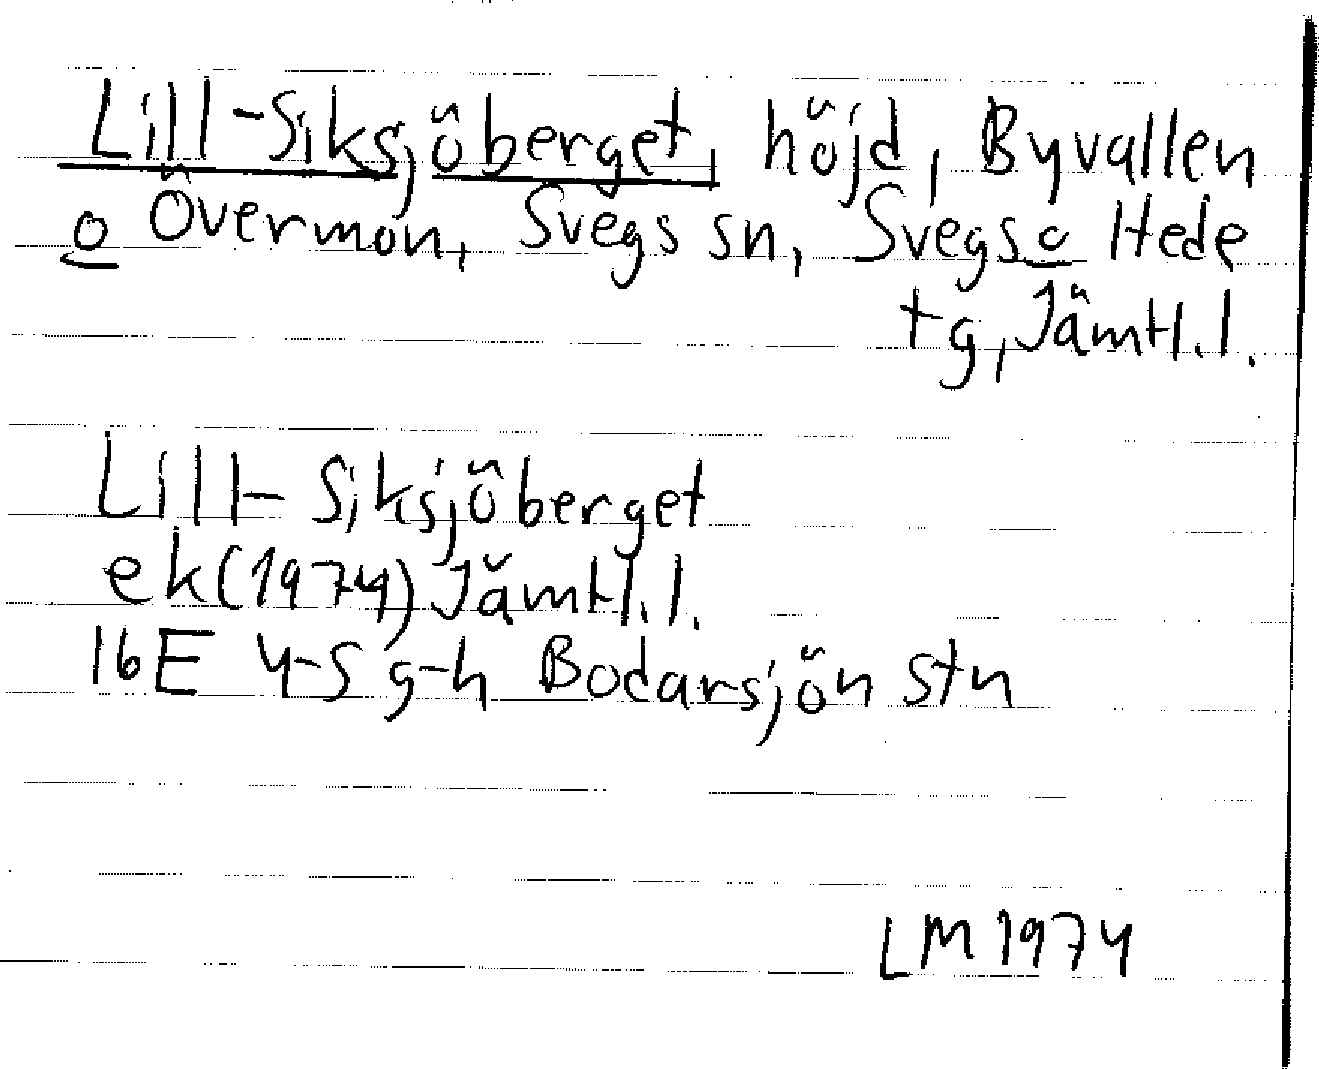 Lill-Siksjöberget, höjd, Byvallen
o Övermon, Svegs sn, Svegs o Hede
tg, Jämtl.l.
Lill-Siksjöberget
ek(1974) Jämtl.l.
16E 4-5 g-h Bodarsjön stn
LM 1974